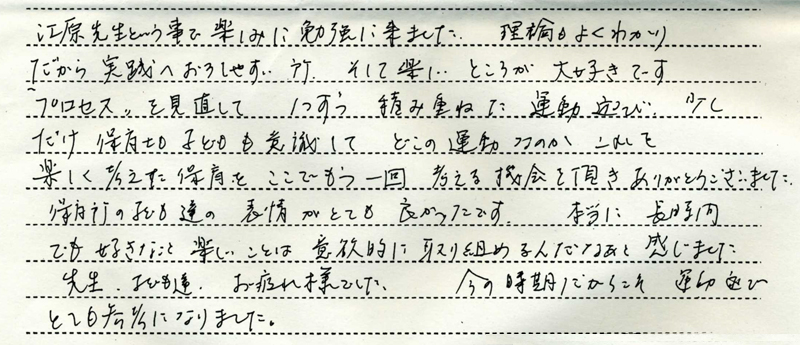 江原先生という事で楽しみに勉強に来ました。 理論もよくわかり
だから実践へおろしやすい所、そして楽しいところが大好きです
"プロセス〟を見直して 1つずつ 積み重ねた 運動遊び、少し
だけ 保育士も子どもも意識して どこの運動 なのか これを
楽しく考えた保育を ここでもう一回 考える機会を頂きありがとうございました。
保育所の子ども達の 表情がとても 良かったです。 本当に 長時間
でも好きなこと 楽しいことは 意欲的に取り組めるんだなあと感じました
先生、子ども達、お疲れ様でした。 今の時期だからこそ 運動遊び
とても参考になりました。